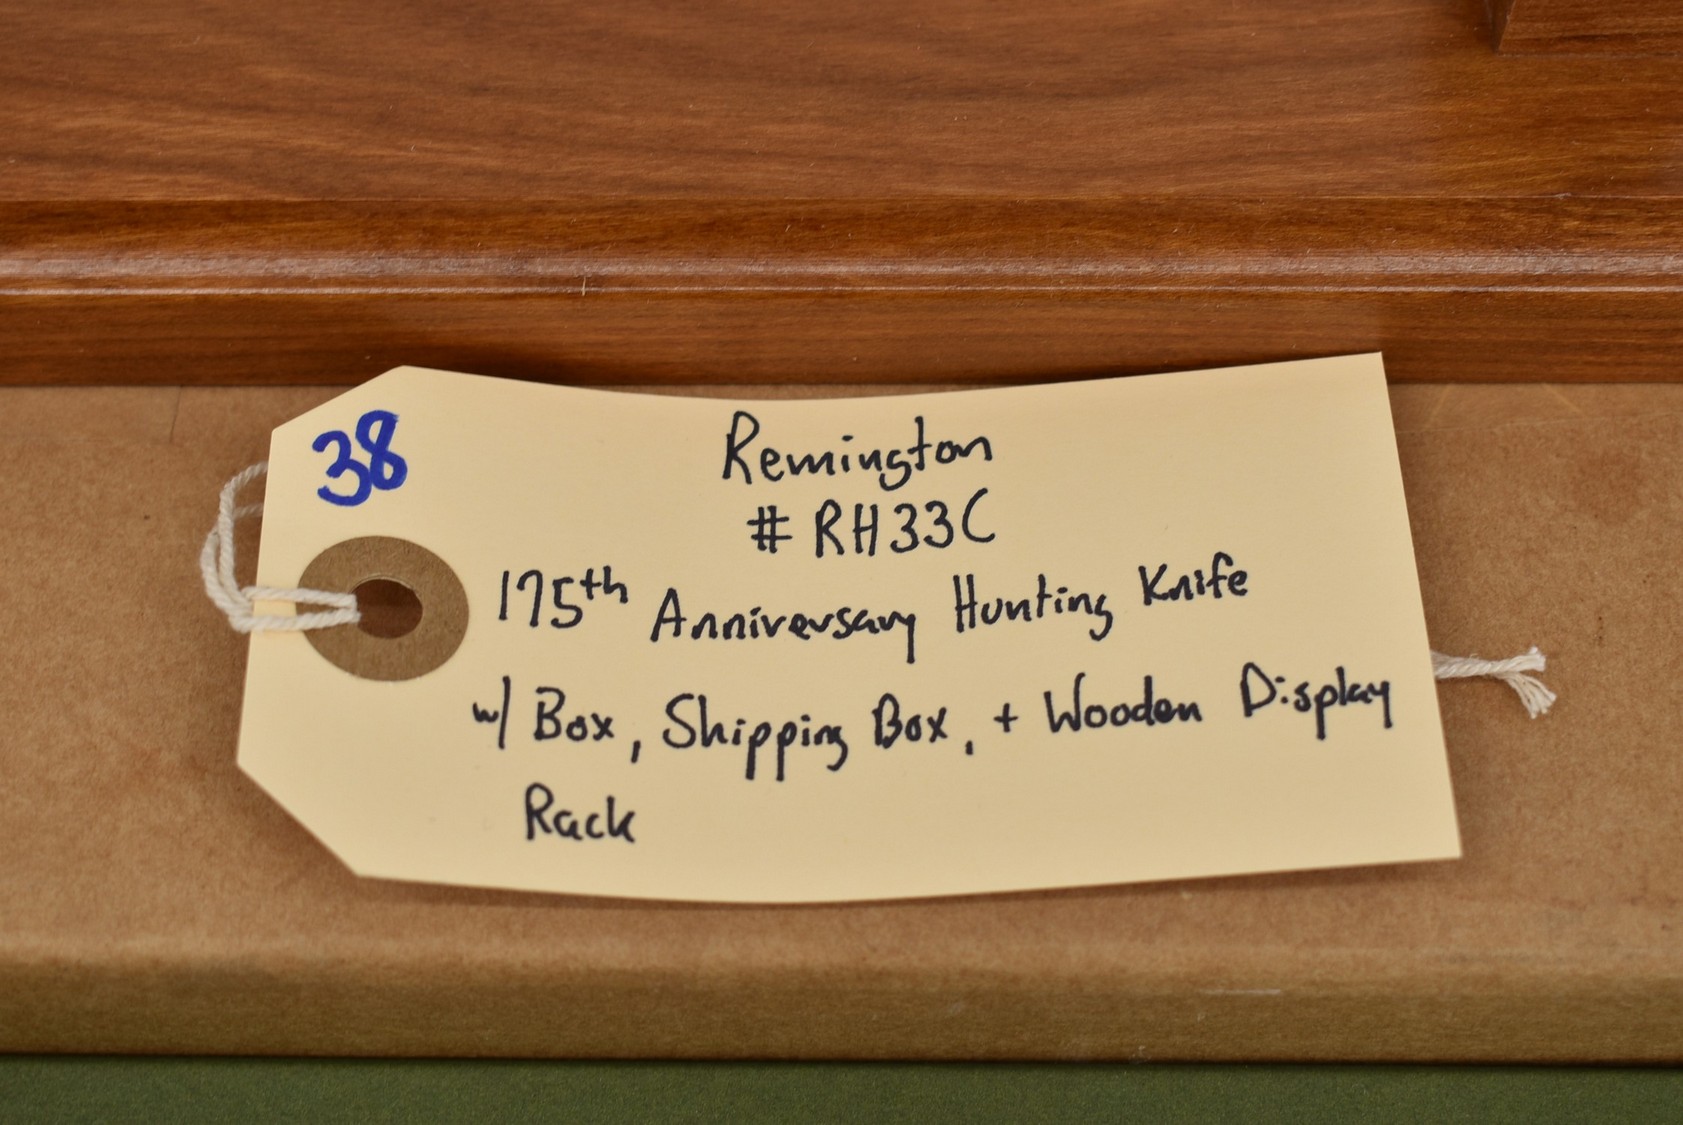 38
Remington
# RH33C
175th Anniversary Hunting Knife
w/ Box, Shipping Box, + Wooden Display
Rack